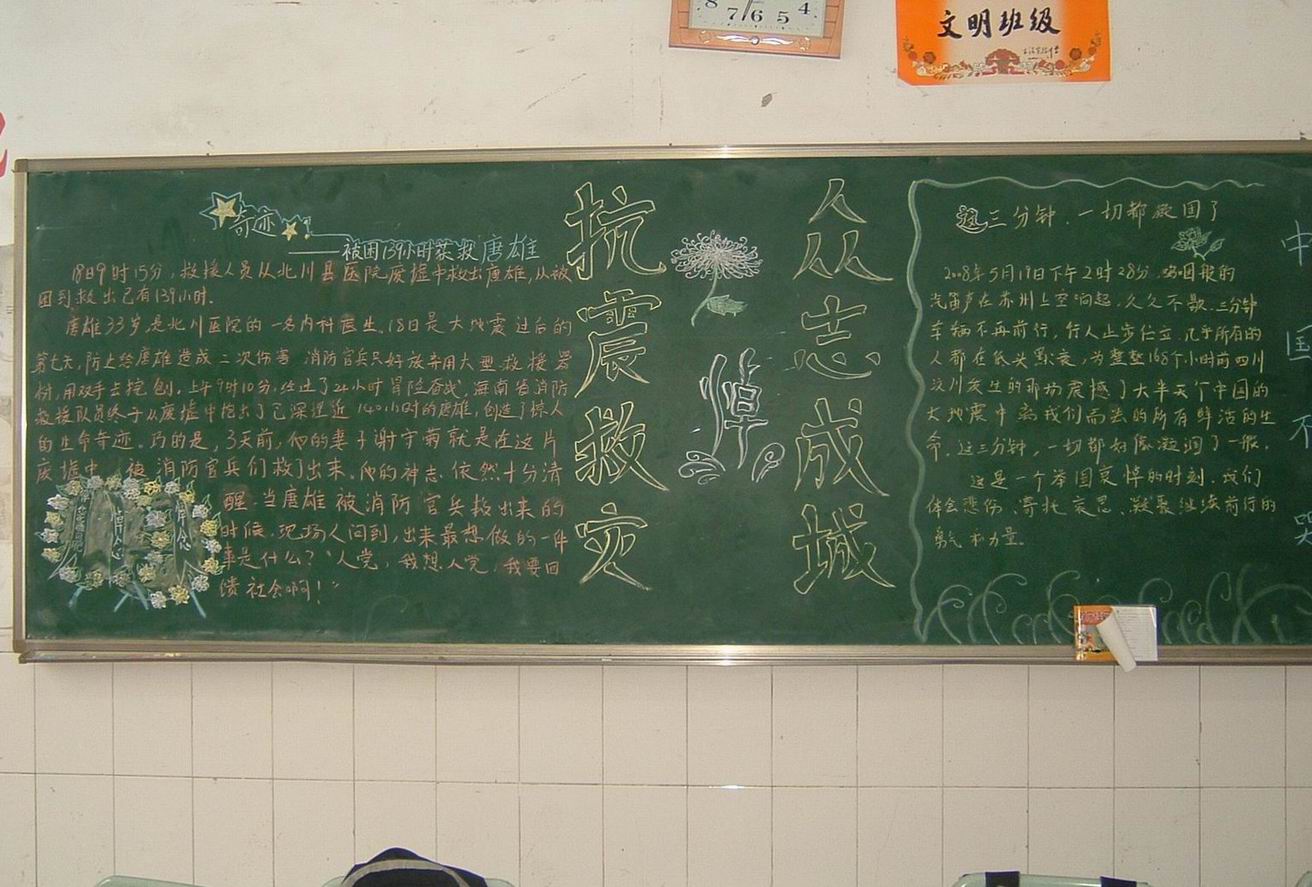 8 7 6 5 4
文明班级
奇迹
——被困139小时获救唐雄
18日9时15分,救援人员从北川县医院废墟中救出唐雄,从被
困到救出已有139小时.
唐雄33岁,是北川医院的一名内科医生.18日是大地震过后的
第七天,防止给唐雄造成二次伤害 消防官兵只好放弃用大型救援器
材,用双手去挖刨,上午9时10分,经过了24小时冒险奋战,海南省消防
救援队员终于从废墟中挖出了已深埋近140小时的唐雄,创造了惊人
的生命奇迹.巧的是,3天前,他的妻子谢守菊就是在这片
废墟中 被消防官兵们救了出来.他的神志依然十分清
醒.当唐雄被消防官兵救出来的
时候,现场人问到,出来最想做的一件
事是什么?"入党,我想入党,我要回
馈社会啊!"
抗震救灾
悼
众志成城
这三分钟,一切都凝固了
2008年5月19日下午2时28分,呜咽般的
汽笛声在苏州上空响起,久久不歇.三分钟
车辆不再前行,行人止步伫立,几乎所有的
人都在低头默哀,为整整168个小时前四川
汶川发生的那场震撼了大半个中国的
大地震中离我们而去的所有鲜活的生
命.这三分钟,一切都好像凝固了一般.
这是一个举国哀悼的时刻.我们
体会悲伤、寄托哀思、凝聚继续前行的
勇气和力量.
中国不哭